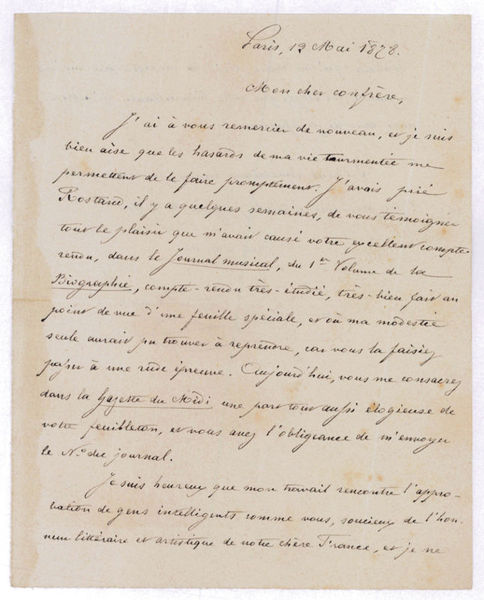 Paris, 12 Mai 1878.
Mon cher confrère,
J'ai à vous remercier de nouveau, et je suis
bien aise que les hasards de ma vie tourmentée me
permettent de le faire promptement. J'avais prié
Rostand, il y a quelques semaines, de vous témoigner
tout le plaisir que m'avait causé votre excellent compte-
rendu, dans le Journal musical, du 1er Volume de la
Biographie, compte-rendu très-étudié, très-bien fait au
point de vue d'une feuille spéciale, et où ma modestie
seule aurait pu trouver à reprendre, car vous la faisiez
passer à une rude épreuve. Aujourd'hui, vous me consacrez
dans la Gazette du Midi une part tout aussi élogieuse de
votre feuilleton, et vous avez l'obligeance de m'envoyer
le No du journal.
Je suis heureux que mon travail rencontre l'appro-
bation de gens intelligents comme vous, soucieux de l'hon-
neur littéraire et artistique de notre chère France, et je ne